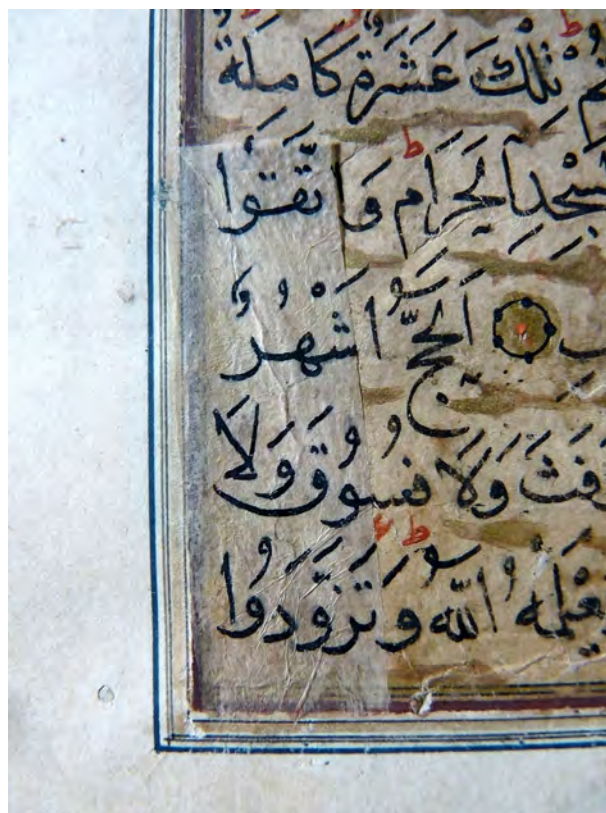 تِلْكَ عَشَرَةٌ كَامِلَةٌ
الْحَرَامِ ط وَاتَّقُوا
الْحَجُّ اَشْهُرٌ
وَلَا فُسُوقَ وَلَا
يَعْلَمْهُ اللّٰهُ ط وَتَزَوَّدُوا